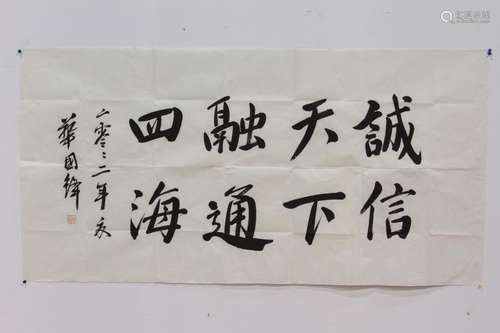 誠信
天下
融通
四海
二零〻二年夏
華國鋒